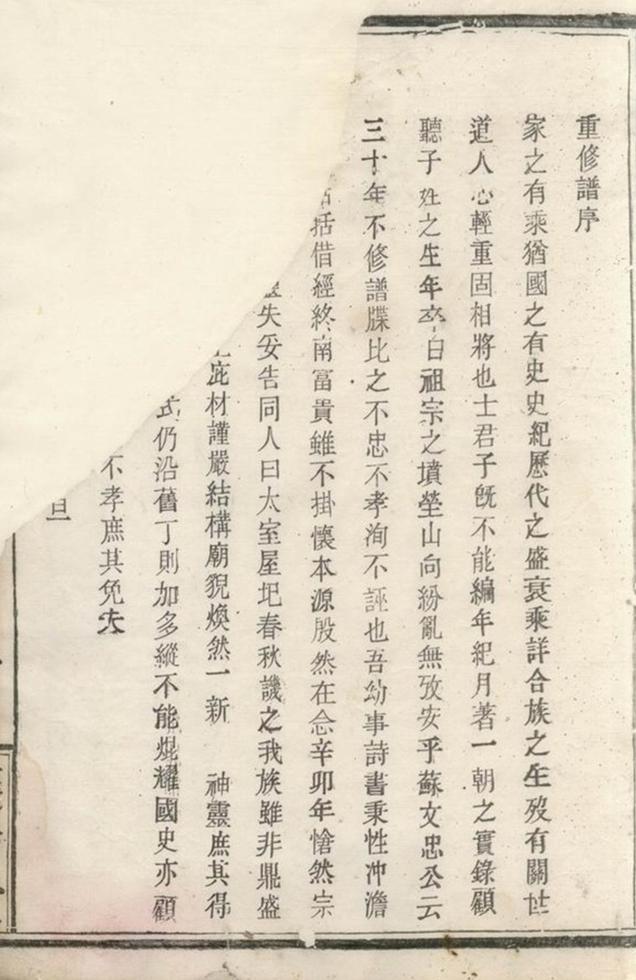 重修譜序
家之有乘猶國之有史史紀歷代之盛衰乘詳合族之生歿有關世
道人心輕重固相將也士君子旣不能編年紀月著一朝之實錄顧
聽子姓之生年卒白祖宗之墳塋山向紛亂無攷安乎蘇文忠公云
三十年不修譜牒比之不忠不孝洵不誣也吾幼事詩書秉性冲澹
括借經終南富貴雖不掛懷本源殷然在念辛卯年愴然宗
失妥告同人曰太室屋圮春秋譏之我族雖非鼎盛
庇材謹嚴結構廟貌煥然一新 神靈庶其得
式仍沿舊丁則加多縱不能焜耀國史亦顧
不孝庶其免夫
旦